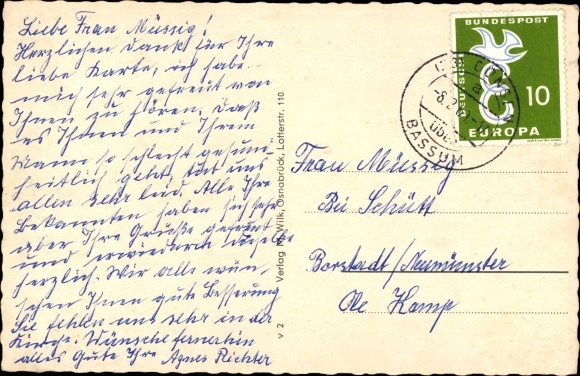 Liebe Frau Müssig!
Herzlichen Dank für Ihre
liebe Karte, ich habe
mich sehr gefreut von
Ihnen zu hören. Daß
es Ihnen und Ihrem
Mann so schlecht gesund-
heitlich geht, tut uns
allen sehr leid. Alle Ihre
Bekannten haben sich sehr
über Ihre Grüße gefreut
und erwiedern dieselbe
herzlich. Wir alle wün-
schen Ihnen gute Besserung
Sie fehlen uns sehr in der
Kirche. Wünsche fernerhin
alles Gute Ihre Agnes Richter
V 2 Verlag M. Wilk, Osnabrück, Lotterstr. 110
DEUTSCHE
BUNDESPOST
10
EUROPA
über
BASSUM
Frau Müssig
Bei Schütt
Borstadt/Neumünster
Ole Kamp